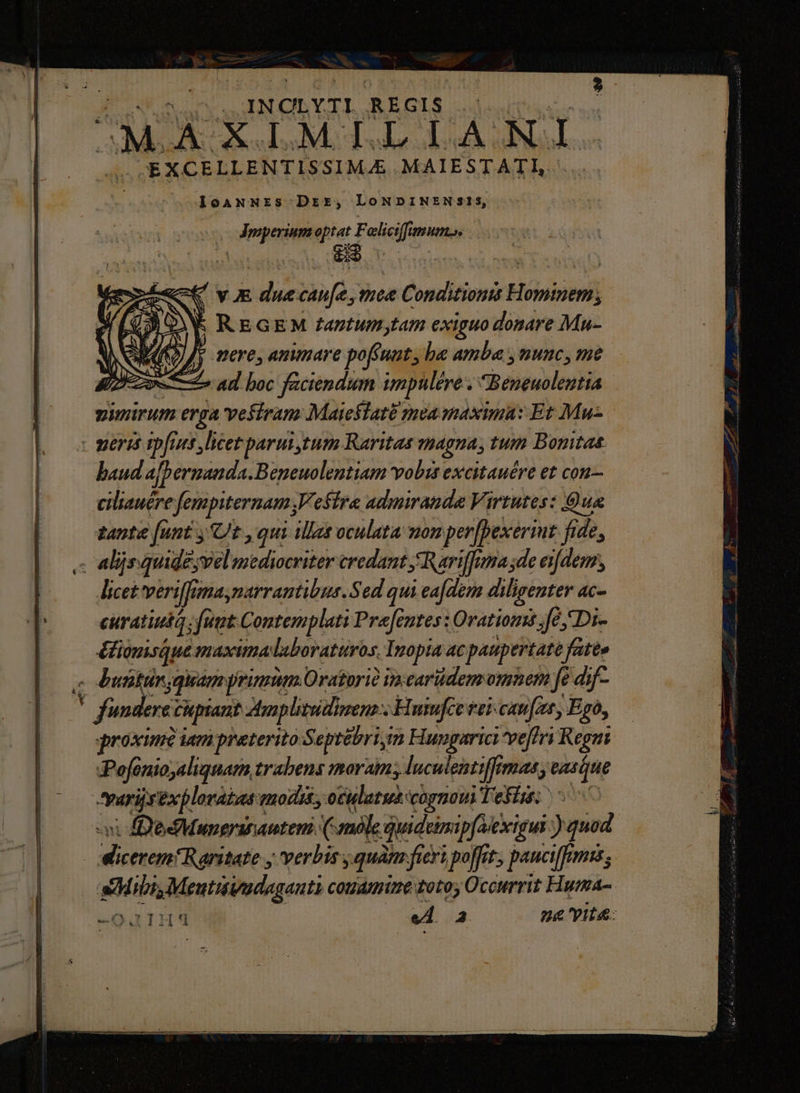 2
INCLYTI REGIS
MAXIMILIANI
EXCELLENTISSIMÆ MAIESTATI,
IOANNES DEE, LONDINENSIS,
Imperium optat Fœliciſſimum.
VÆ duæ cauſæ, meæ Conditionis Hominem,
REGEM tantum, tam exiguo donare Mu-
nere, animare poſſunt, hæ ambæ, nunc, me
ad hoc faciendum impulêre. Beneuolentia
nimirum erga veſtram Maieſtatē mea maxima: Et Mu-
neris ipſius, licet parui, tum Raritas magna, tum Bonitas
haud aſpernanda. Beneuolentiam vobis excitauére et con-
ciliauêre ſempiternam, Veſtræ admirandæ Virtutes: Quæ
tantæ ſunt, Vt, qui illas oculata non perſpexerint fide,
alijs quidē, vel mediocriter credant, Rariſſima, de eiſdem,
licet veriſſima, narrantibus. Sed qui eaſdem diligenter ac-
curatiusq́; ſunt Contemplati Præſentes: Orationis, ſe, Di-
ctionisque maxima laboraturos, Inopia ac paupertate fate-
buntur, quam primùm Oratoriè in earūdem omnem ſe dif-
fundere cupiant Amplitudinem. Huiuſce rei cauſas, Ego,
proximè iam præterito Septēbri, in Hungarici veſtri Regni
Poſonio, aliquam trahens moram, luculentiſſimas, easque
varijs exploratas modis, oculatus cognoui Teſtis.
De Muneris autem (mole quidem ipſa exigui) quod
dicerem Raritate, verbis, quàm fieri poſſit, pauciſſimis,
Mihi, Mentis indaganti conamine toto, Occurrit Huma-
A 2 næ vitæ